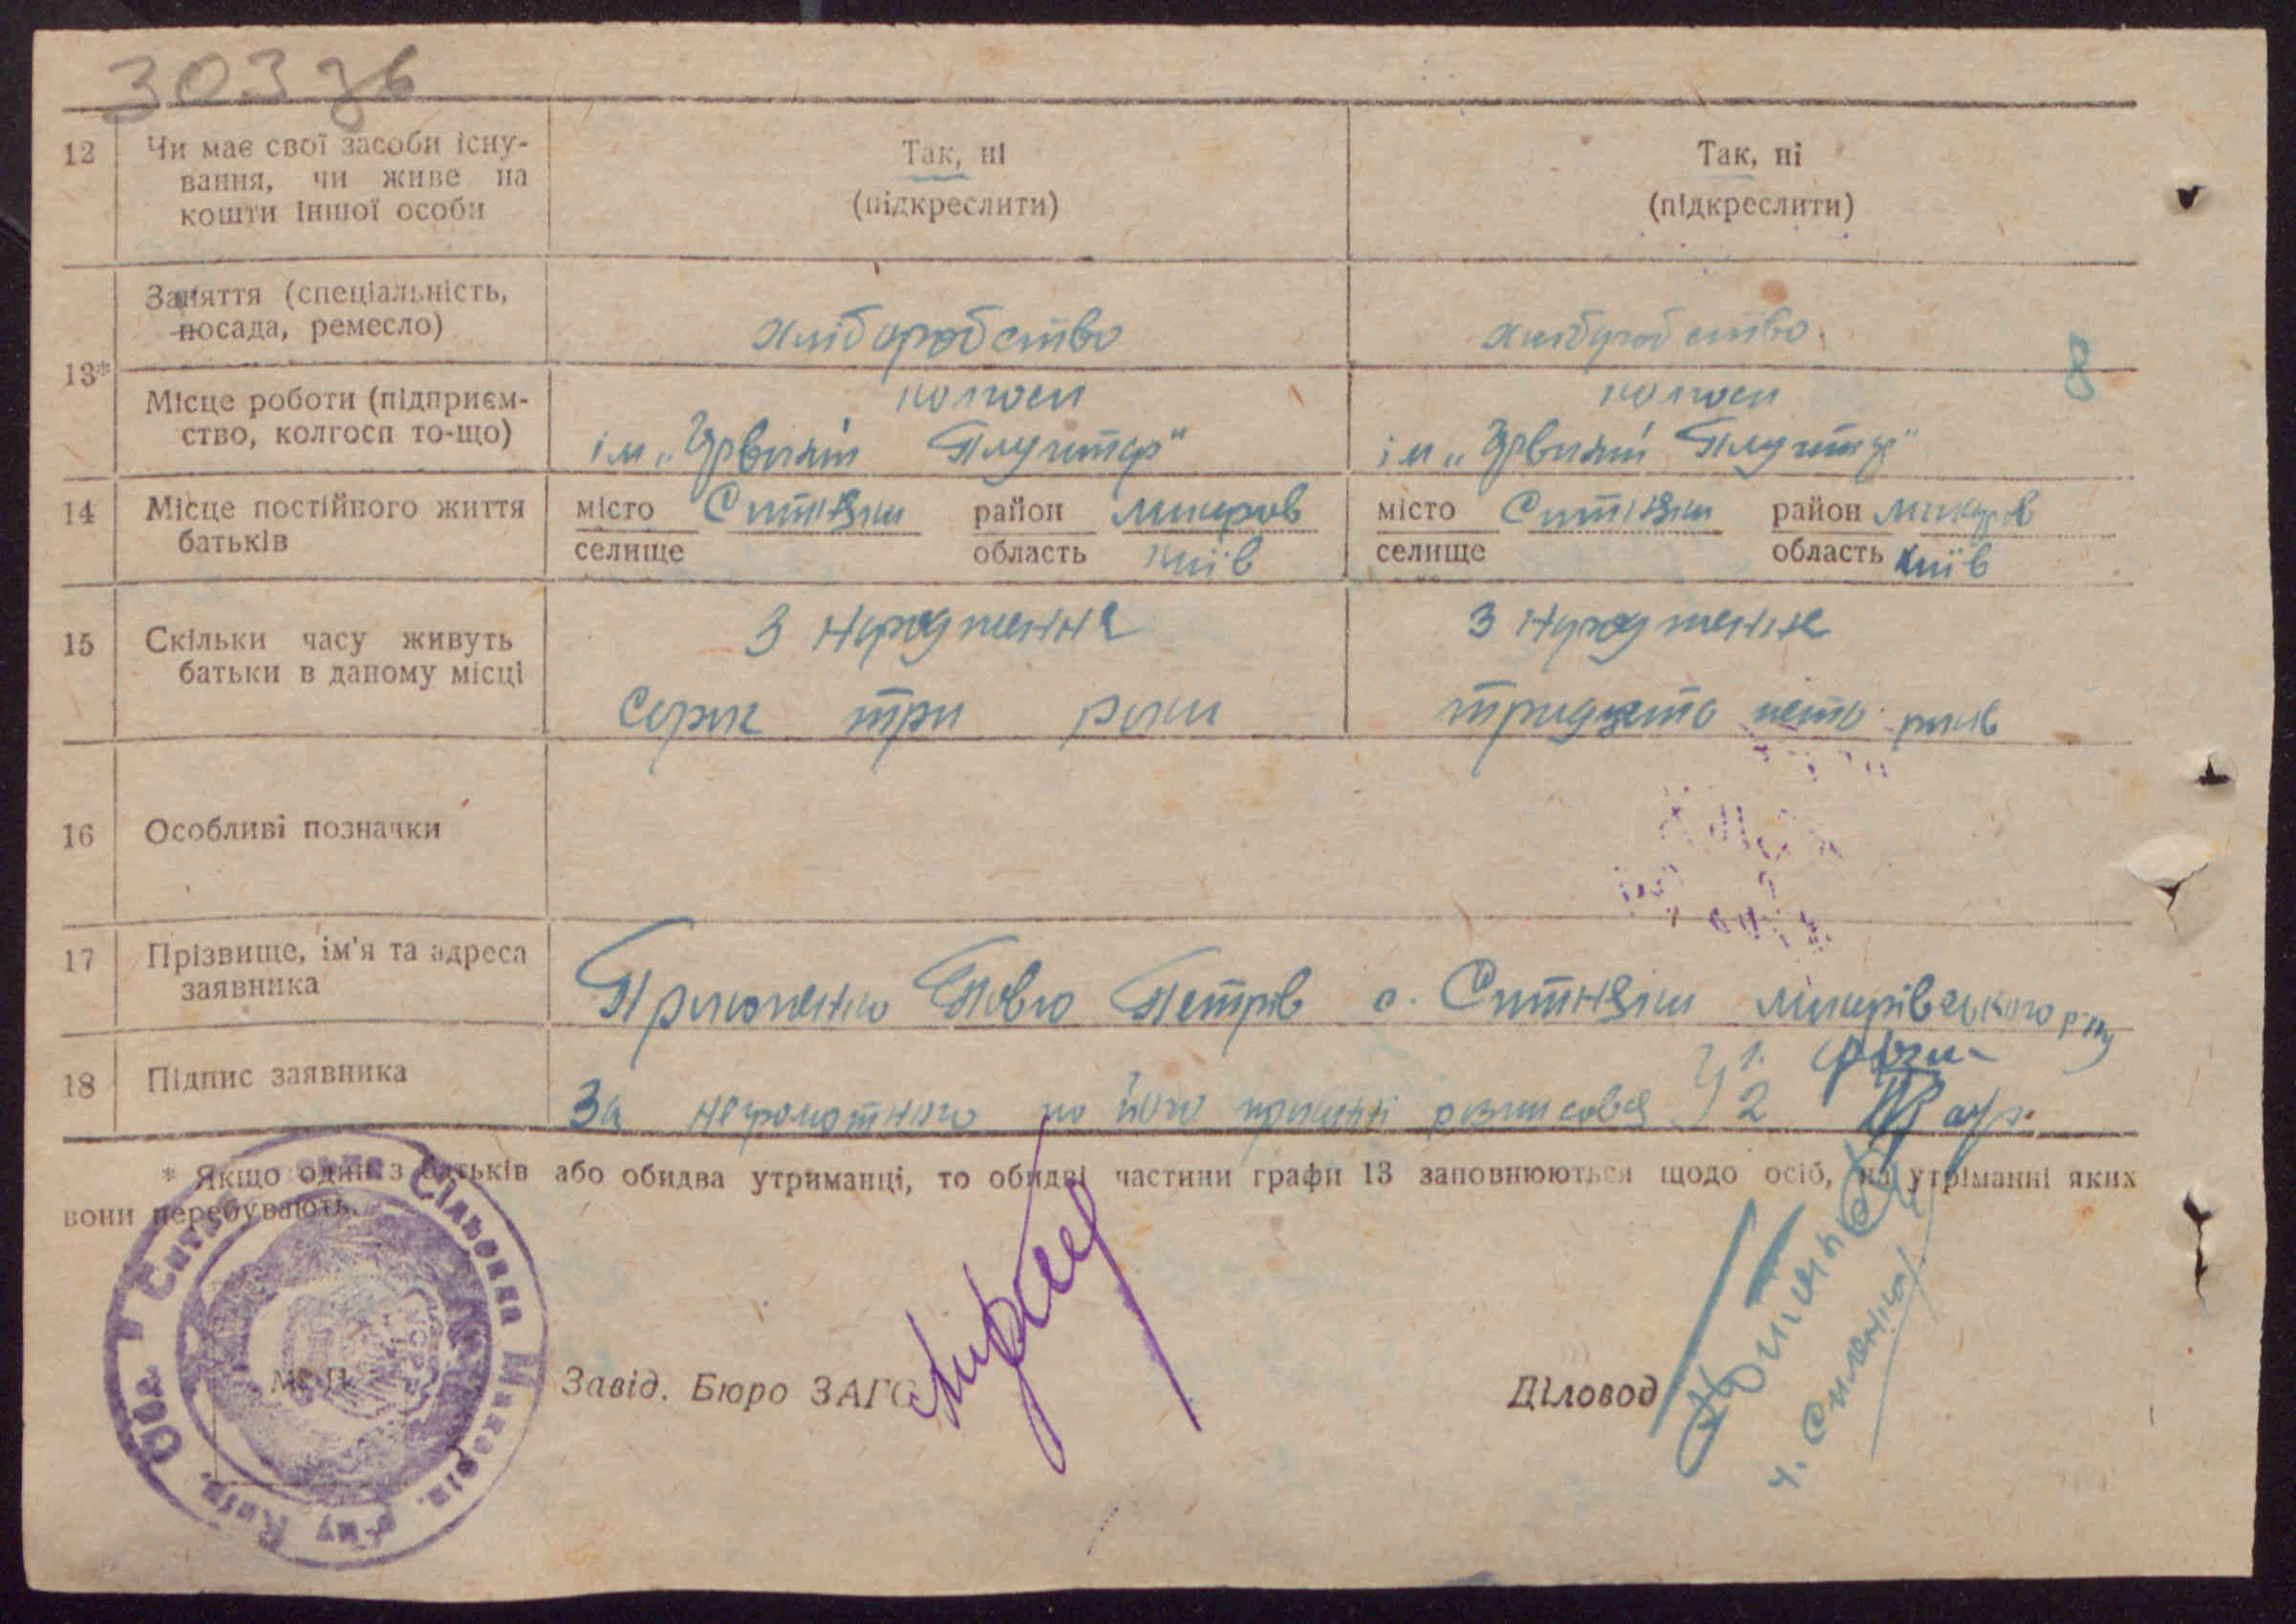 303 зв
12 Чи має свої засоби існу-
вання, чи живе на
кошти іншої особи
Так, ні
(підкреслити)
Так, ні
(підкреслити)
13*
Заняття (спеціальність,
посада, ремесло)
хліборобство
хліборобство
8
Місце роботи (підприєм-
ство, колгосп то-що)
колгосп
ім „ Плугатар"
колгосп
ім „ Плугатар"
14 Місце постійного життя
батьків
місто Ситняки район Макарів
селище область Київ
місто Ситняки район Макарів
селище область Київ
15 Скільки часу живуть
батьки в даному місці
З народження
сорок три роки
З народження
тридцять пять років
16 Особливі позначки
17 Прізвище, ім'я та адреса
заявника
Павло Петрів с. Ситняки Макарівського р-ну
18 Підпис заявника
За неграмотного по його проханні розписався 1.
2
* Якщо один з батьків або обидва утриманці, то обидві частини графи 13 заповнюються щодо осіб, на утріманні яких
вони перебувають.
М. П.
Завід. Бюро ЗАГС
Діловод